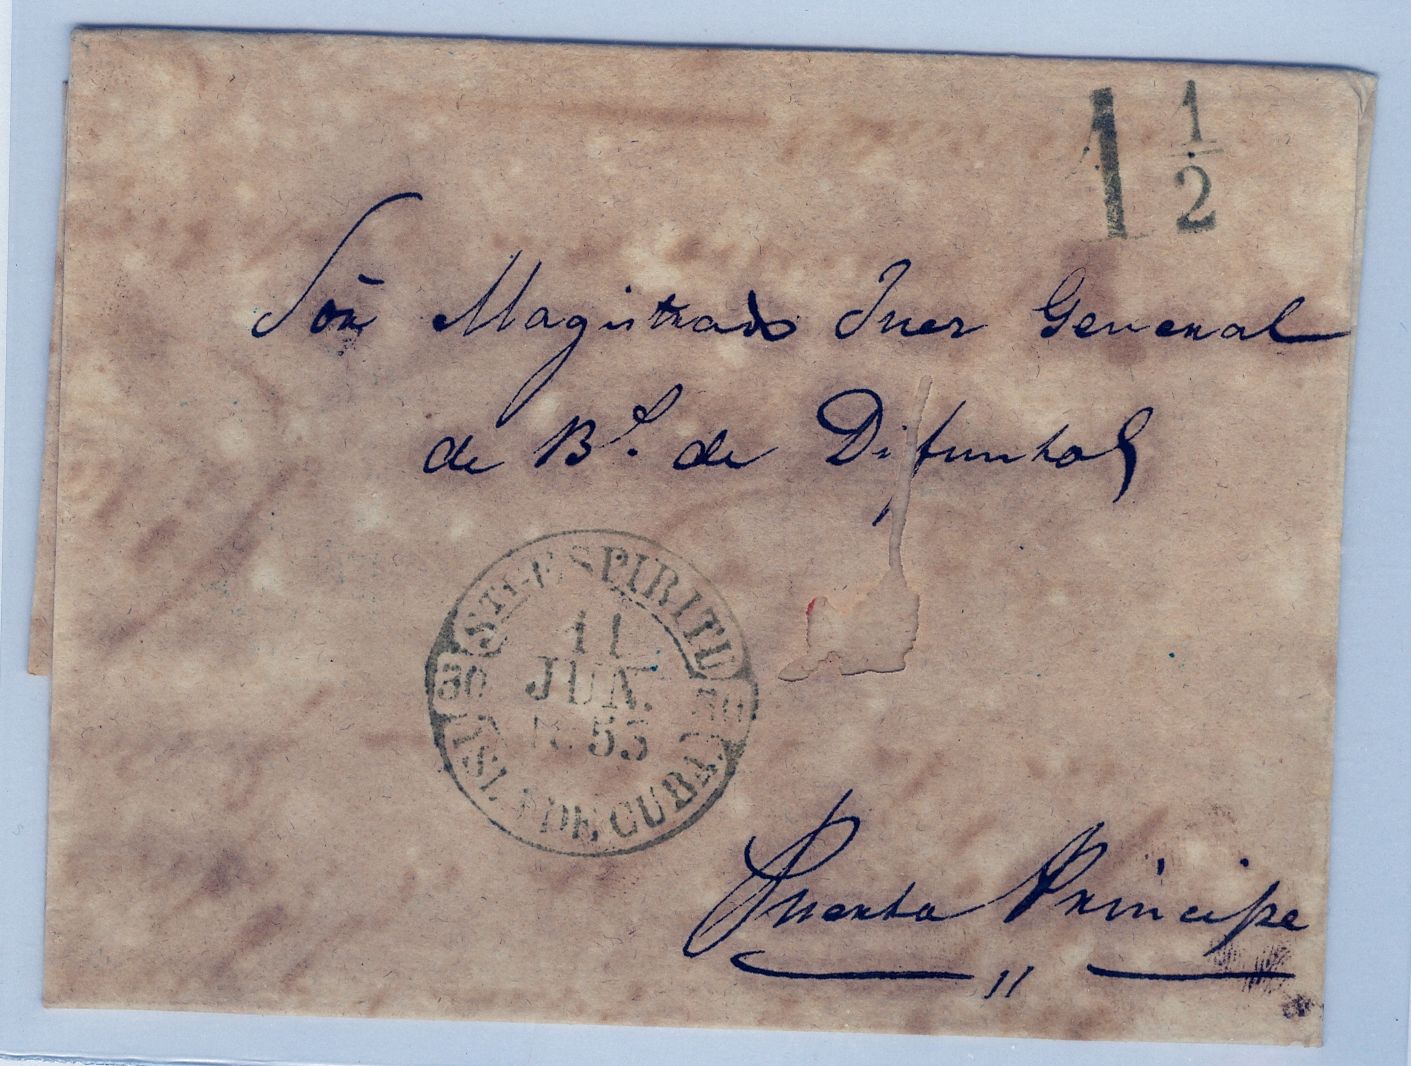 1 1/2
Sor. Magistrado Juez General
de Bs. de Difuntos
STI-ESPIRITU
11
JUN.
1853
30
ISLA DE CUBA.
Puerto Principe